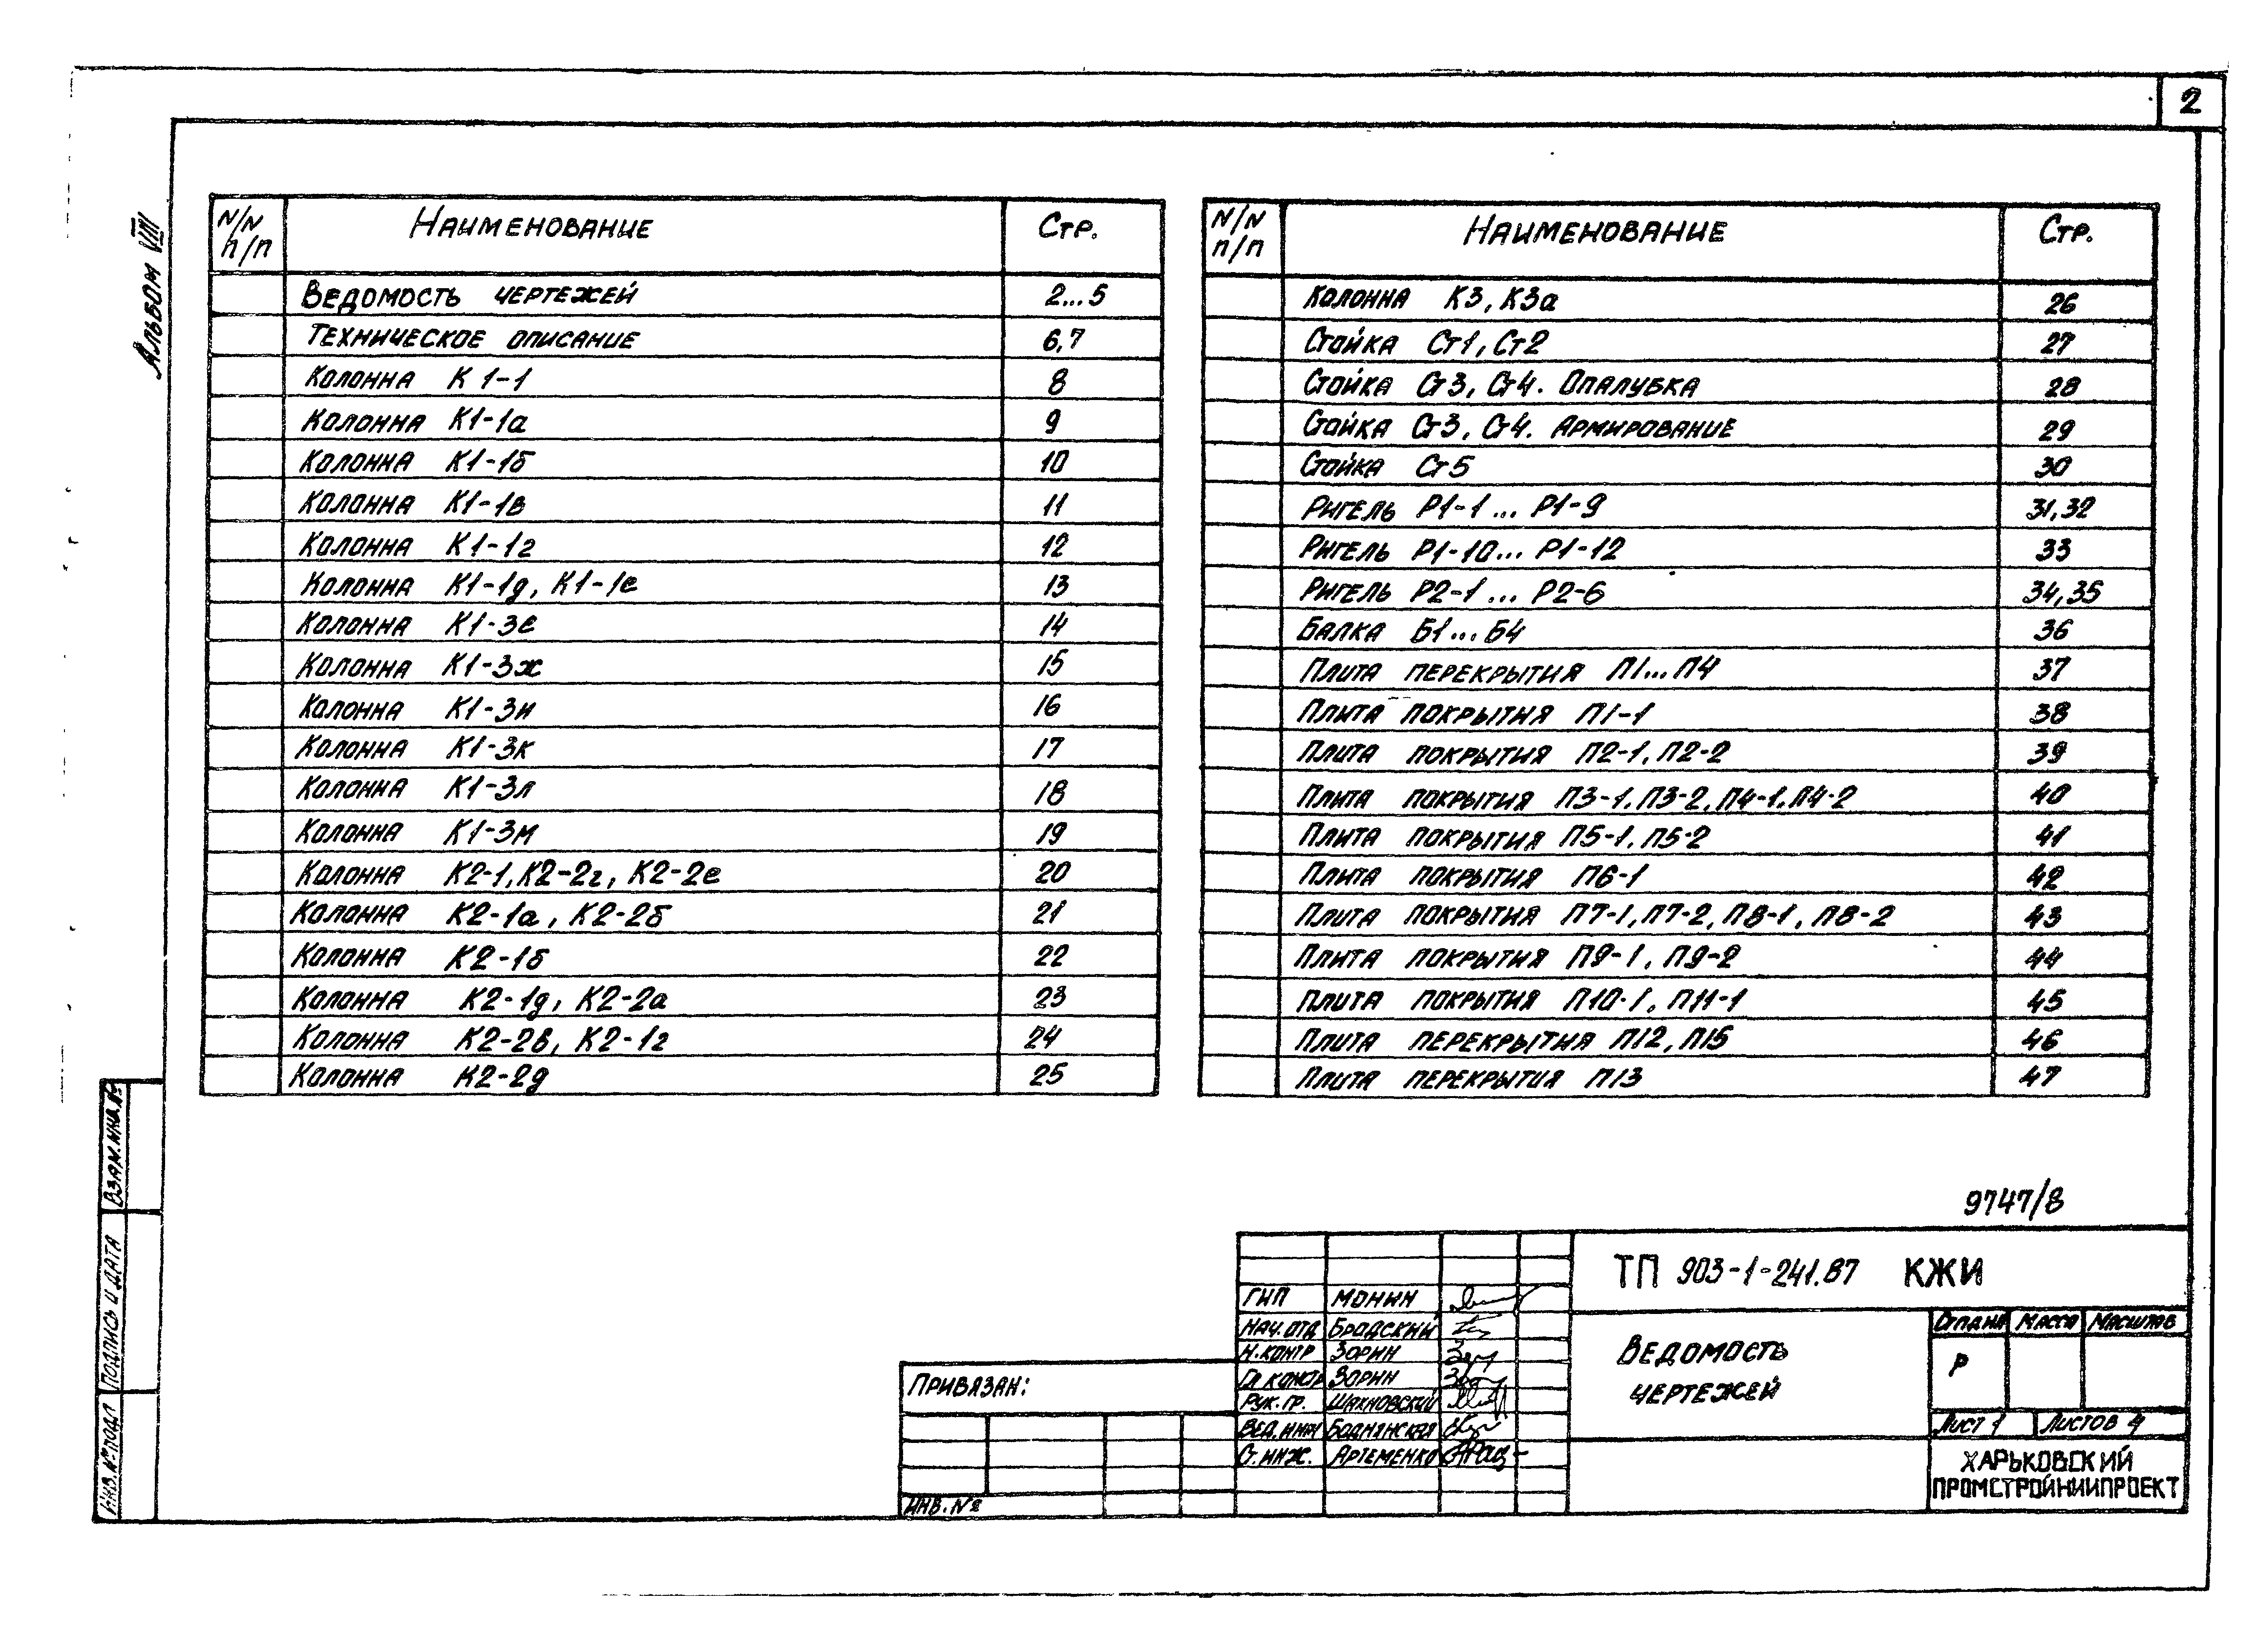 2
Альбом VIII
N/N п/п Наименование Стр.
Ведомость чертежей 2...5
Техническое описание 6,7
Колонна К1-1 8
Колонна К1-1а 9
Колонна К1-1б 10
Колонна К1-1в 11
Колонна К1-1г 12
Колонна К1-1д, К1-1е 13
Колонна К1-3е 14
Колонна К1-3ж 15
Колонна К1-3и 16
Колонна К1-3к 17
Колонна К1-3л 18
Колонна К1-3м 19
Колонна К2-1, К2-2г, К2-2е 20
Колонна К2-1а, К2-2б 21
Колонна К2-1б 22
Колонна К2-1д, К2-2а 23
Колонна К2-2в, К2-1г 24
Колонна К2-2д 25
N/N п/п Наименование Стр.
Колонна К3, К3а 26
Стойка Ст1, Ст2 27
Стойка Ст3, Ст4. Опалубка 28
Стойка Ст3, Ст4. Армирование 29
Стойка Ст5 30
Ригель Р1-1... Р1-9 31,32
Ригель Р1-10... Р1-12 33
Ригель Р2-1... Р2-6 34,35
Балка Б1...Б4 36
Плита перекрытия П1...П4 37
Плита покрытия П1-1 38
Плита покрытия П2-1, П2-2 39
Плита покрытия П3-1, П3-2, П4-1, П4-2 40
Плита покрытия П5-1, П5-2 41
Плита покрытия П6-1 42
Плита покрытия П7-1, П7-2, П8-1, П8-2 43
Плита покрытия П9-1, П9-2 44
Плита покрытия П10-1, П11-1 45
Плита перекрытия П12, П15 46
Плита перекрытия П13 47
Взам.инв.№
Подпись и дата
Инв.№подл
9747/8
ТП 903-1-241.87 КЖИ
ГИП Монин
Нач.отд Бродский
Н.контр Зорин
Гл констр Зорин
Рук.гр. Шахновский
Вед.инж Боднянская
Ст.инж. Артеменко
Привязан:
Инв.№
Ведомость
чертежей
Стадия Масса Масштаб
Р
Лист 1 Листов 4
ХАРЬКОВСКИЙ
ПРОМСТРОЙНИИПРОЕКТ